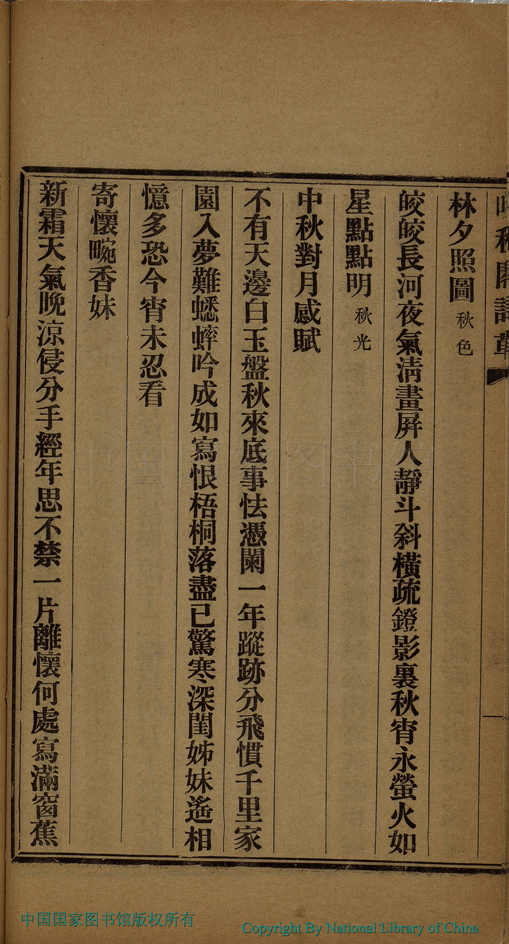 林夕照圖秋色
皎皎長河夜氣清畫屏人靜斗斜橫疏鐙影裏秋宵永螢火如
星點點明秋光
中秋對月感賦
不有天邊白玉盤秋來底事怯憑闌一年蹤跡分飛慣千里家
園入夢難蟋蟀吟成如寫恨梧桐落盡已驚寒深閨姊妹遙相
憶多恐今宵未忍看
寄懷畹香妹
新霜天氣晚涼侵分手經年思不禁一片離懷何處寫滿窗蕉
中国国家图书馆版权所有
Copyright By National Library of China